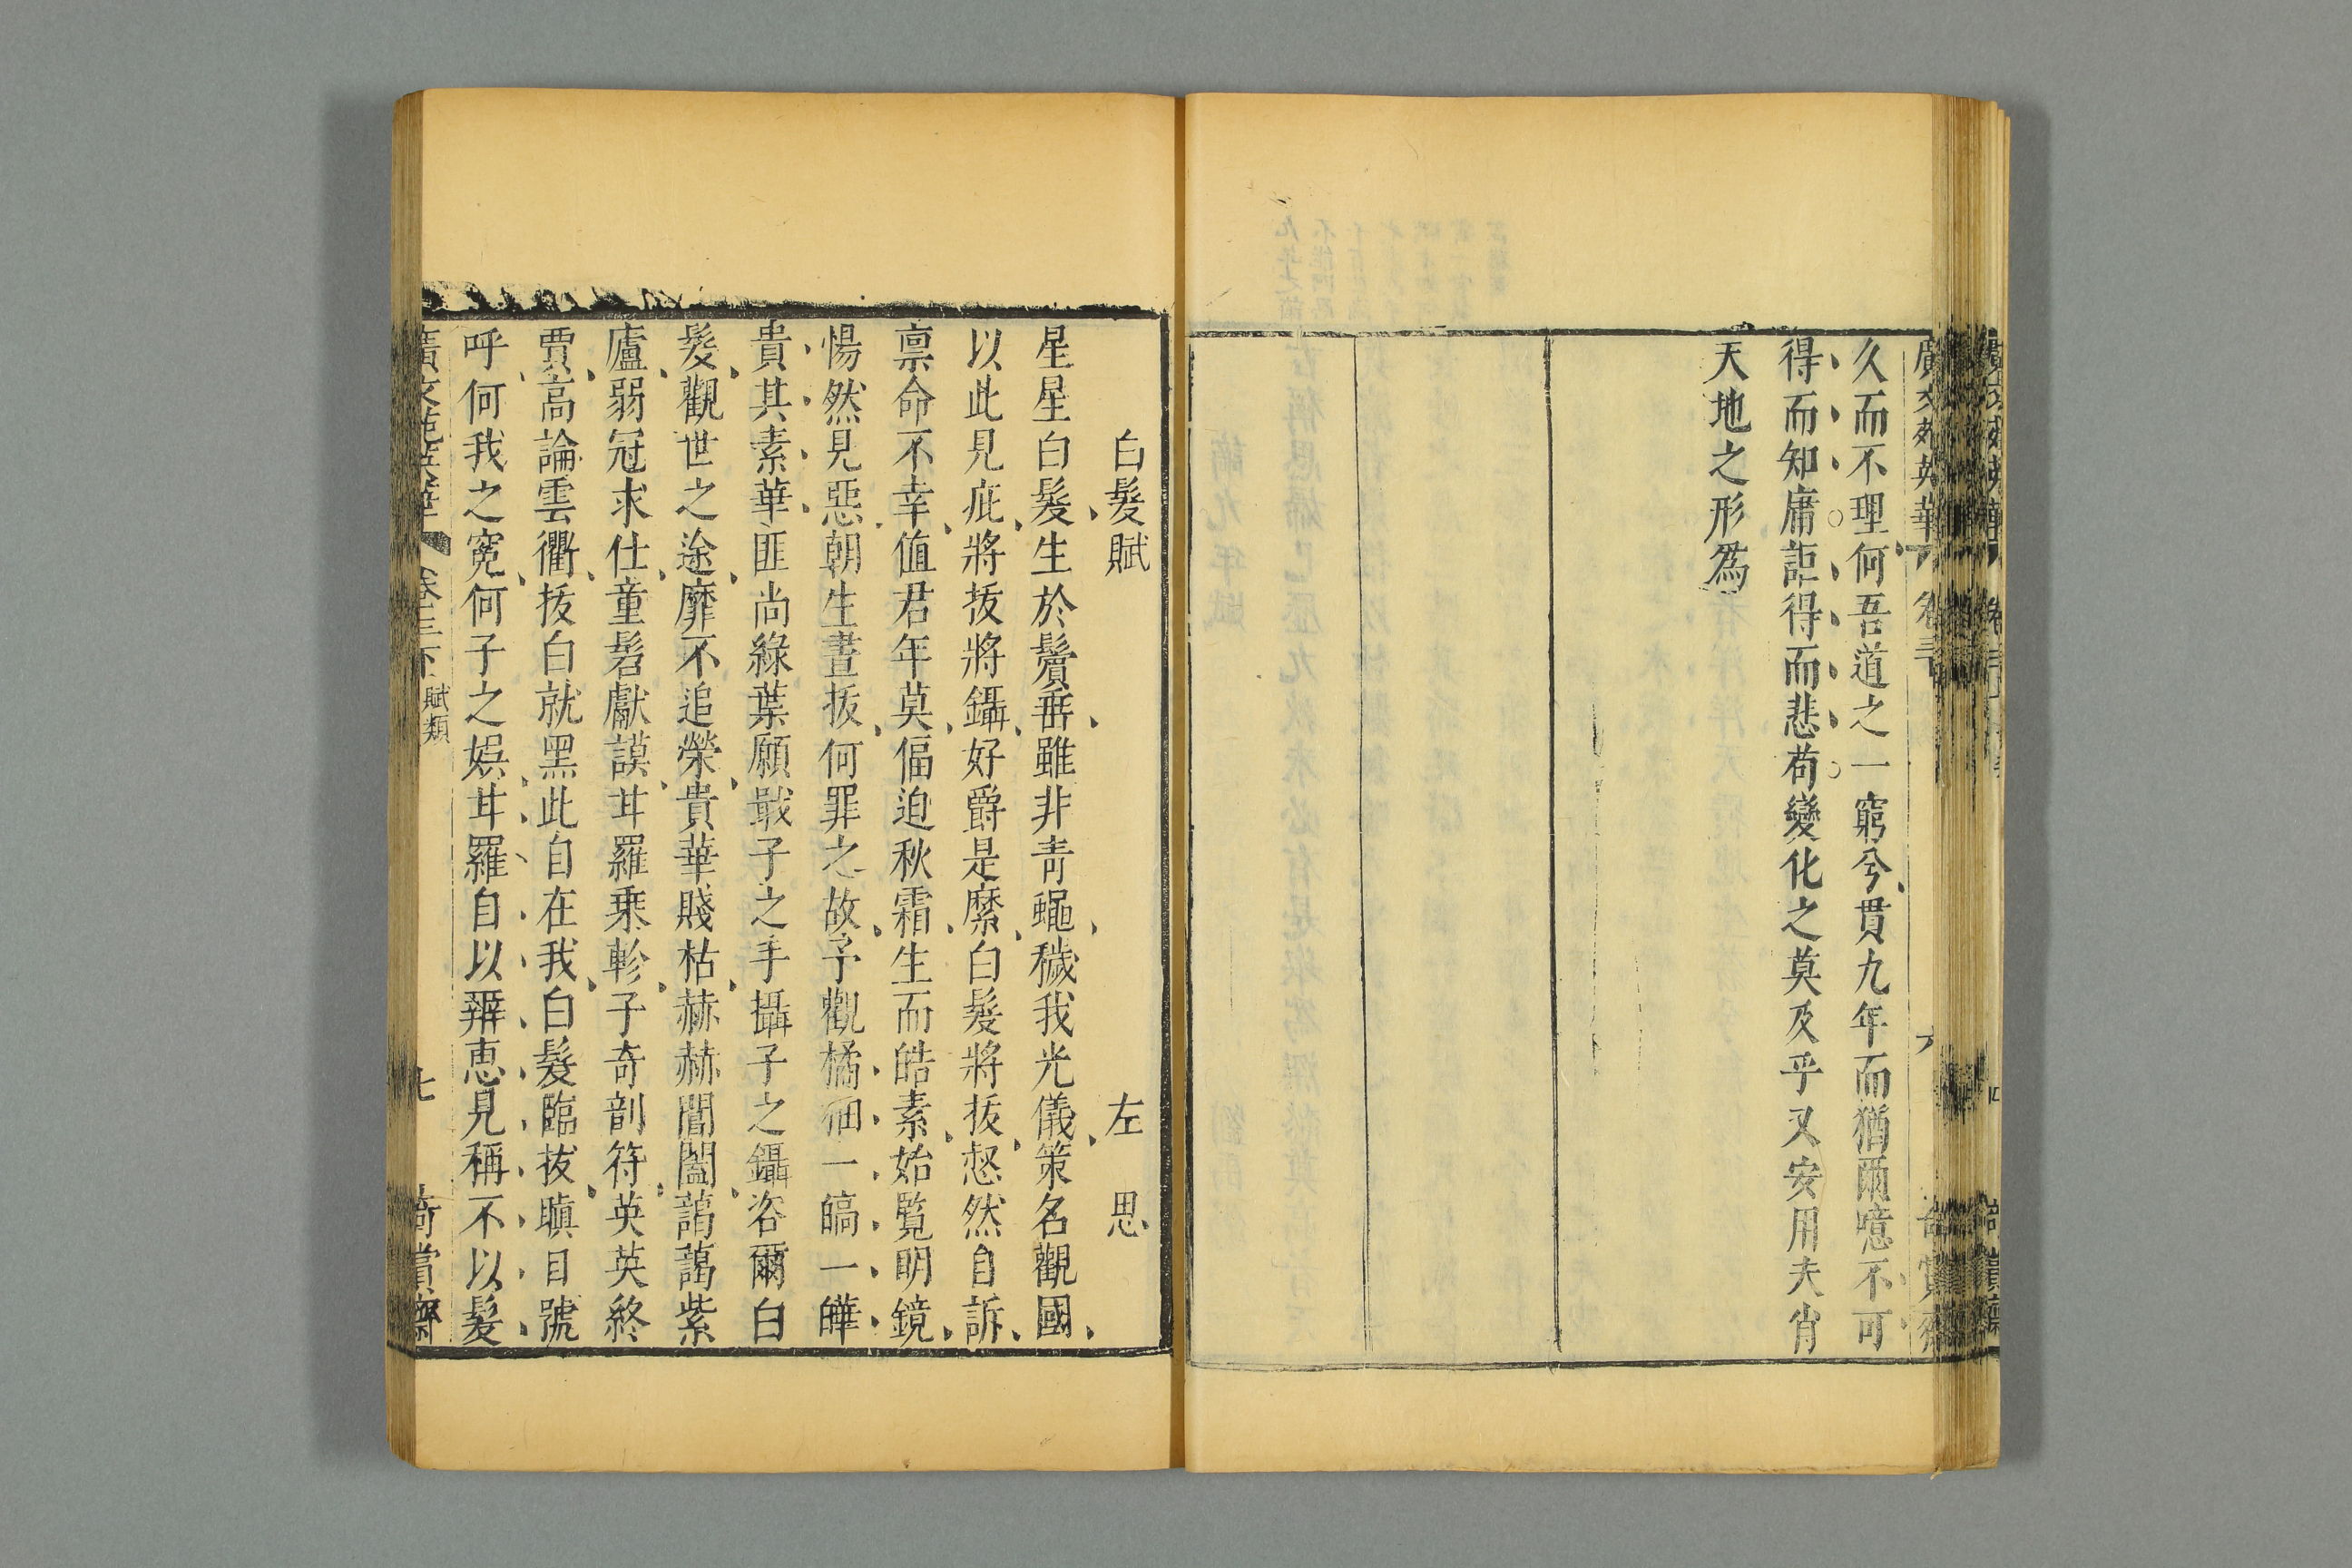 廣文苑英華 卷三 六
久而不理何吾道之一窮兮貫九年而猶爾噫不可
得而知庸詎得而悲苟變化之莫及乎又安用夫肖
天地之形為
白髮賦 左思
星星白髮生於鬢垂雖非青蠅穢我光儀策名觀國
以此見疵將拔將鑷好爵是縻白髮將拔惄然自訴
稟命不幸值君年莫偪迫秋霜生而皓素始覧明鏡
惕然見惡朝生晝拔何罪之故予觀橘柚一皜一曄
貴其素華匪尚綠葉願戢子之手攝子之鑷咨爾白
髮觀世之途靡不追榮貴華賤枯赫赫閶闔藹藹紫
廬弱冠求仕童髫獻謨甘羅乘軫子奇剖符英英終
賈高論雲衢拔白就黑此自在我白髮臨拔瞋目號
呼何我之寃何子之娱甘羅自以辨恵見稱不以髮
廣文苑英華 卷三下 賦類 七